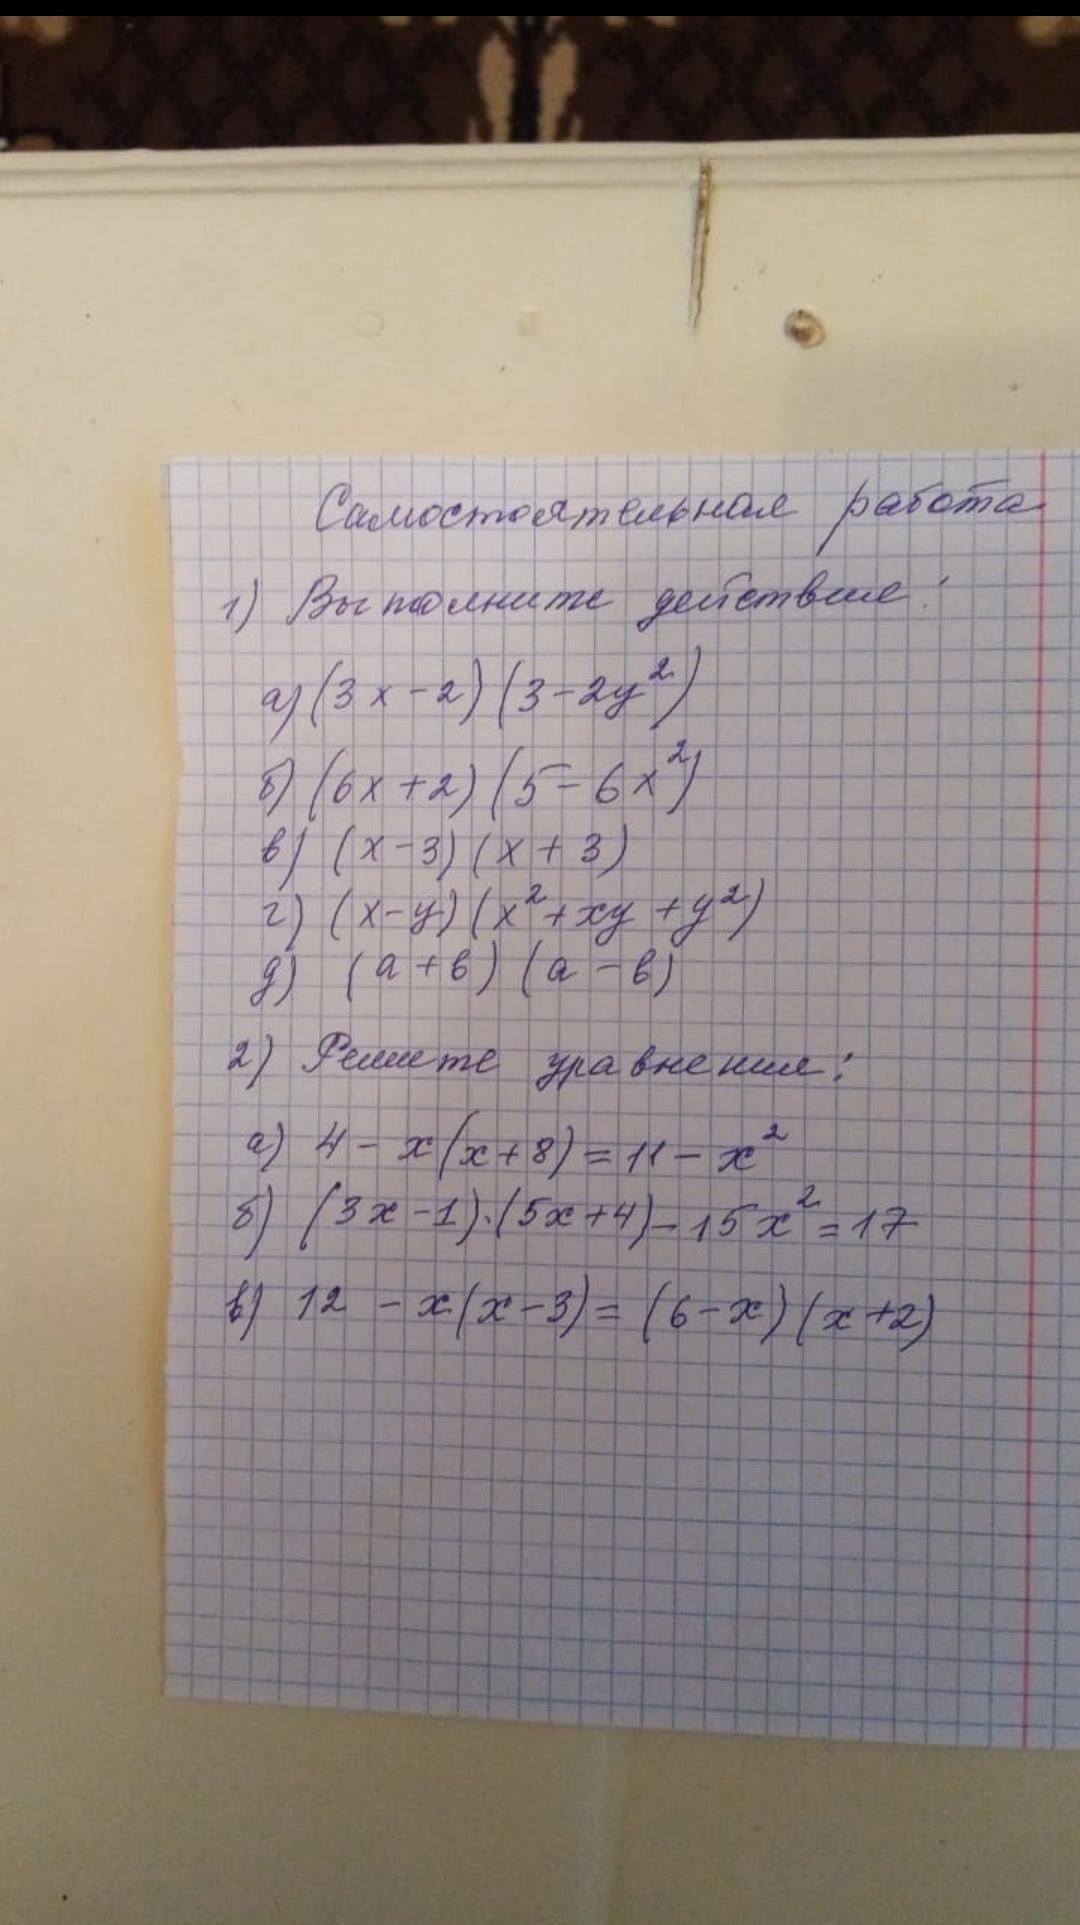 Самостоятельная работа
1) Выполните действие:
а) (3x-2)(3-2y²)
б) (6x+2)(5-6x²)
в) (x-3)(x+3)
г) (x-y)(x²+xy+y²)
д) (a+в)(a-в)
2) Решите уравнения:
а) 4-x(x+8)=11-x²
б) (3x-1)·(5x+4)-15x²=17
в) 12-x(x-3)=(6-x)(x+2)